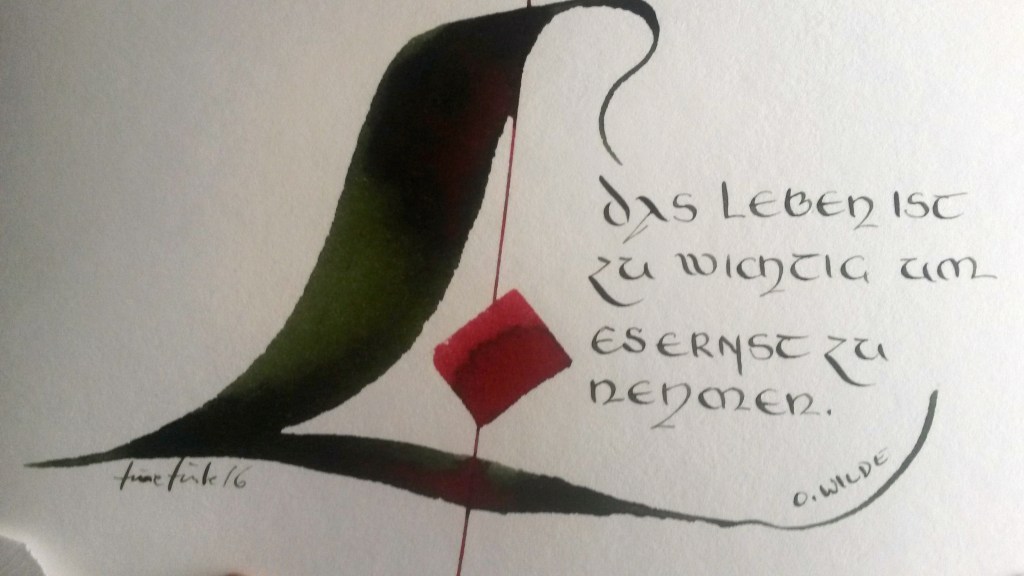 Das Leben ist
zu wichtig um
es ernst zu
nehmen.
O. WILDE